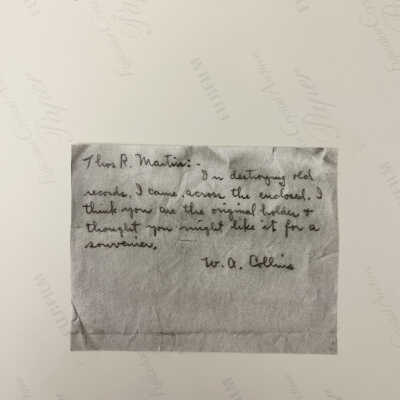 Thos R. Martin:-
In destroying old
records, I came across the enclosed. I
think you are the original holder +
thought you might like it for a
souvenier.
W. A. Collins